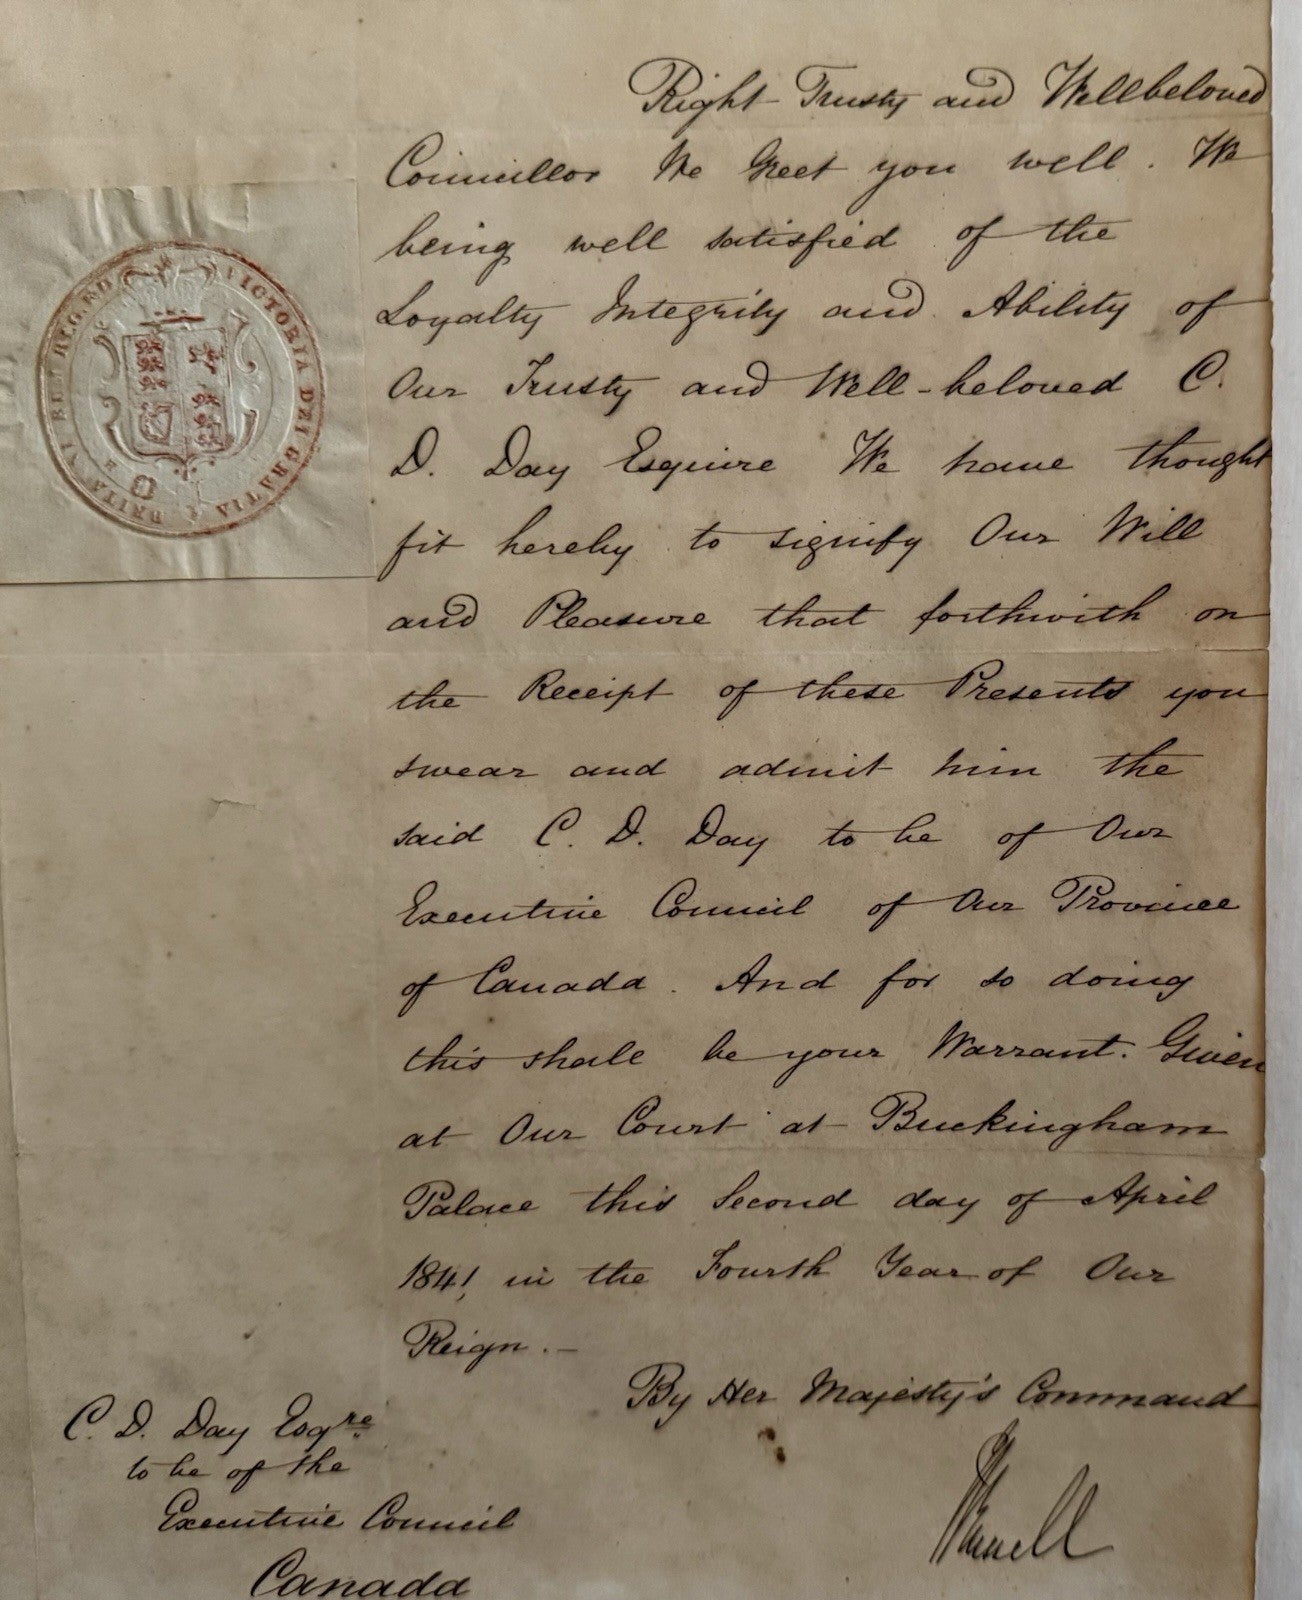 Right Trusty and Wellbeloved
Councillor We Greet you well. We
being well satisfied of the
Loyalty Integrity and Ability of
Our Trusty and Well-beloved C.
D. Day Esquire We have thought
fit hereby to signify Our Will
and Pleasure that forthwith on
the Receipt of these Presents you
swear and admit him the
said C. D. Day to be of Our
Executive Council of Our Province
of Canada. And for so doing
this shall be your Warrant. Given
at Our Court at Buckingham
Palace this Second day of April
1841, in the Fourth Year of Our
Reign.—
By Her Majesty's Command
Russell
C. D. Day Esqre.
to be of the
Executive Council
Canada
VICTORIA DEI GRATIA BRITANNIAR REG F D